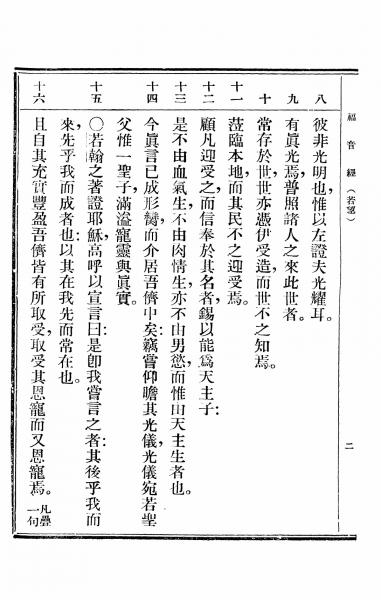 福音經（若望） 二
八 彼非光明也，惟以左證夫光耀耳。
九 有眞光焉，普照諸人之來此世者。
十 常存於世，世亦憑伊受造，而世不之知焉。
十一 蒞臨本地，而其民不之迎受焉。
十二 顧凡迎受之，而信奉於其名者，錫以能爲天主子：
十三 是不由血氣生，不由肉情生，亦不由男慾，而惟由天主生者也。
十四 今眞言已成形𮌎，而介居吾儕中矣：竊嘗仰瞻其光儀，光儀宛若聖
父惟一聖子，滿溢寵靈與眞實。
十五 〇若翰之著證耶穌，高呼以宣言曰：是卽我嘗言之者：其後乎我而
來，先乎我而成者也：以其在我先而常在也。
十六 且自其充實豐盈，吾儕皆有所取受，取受其恩寵而又恩寵焉。凡疊
一句